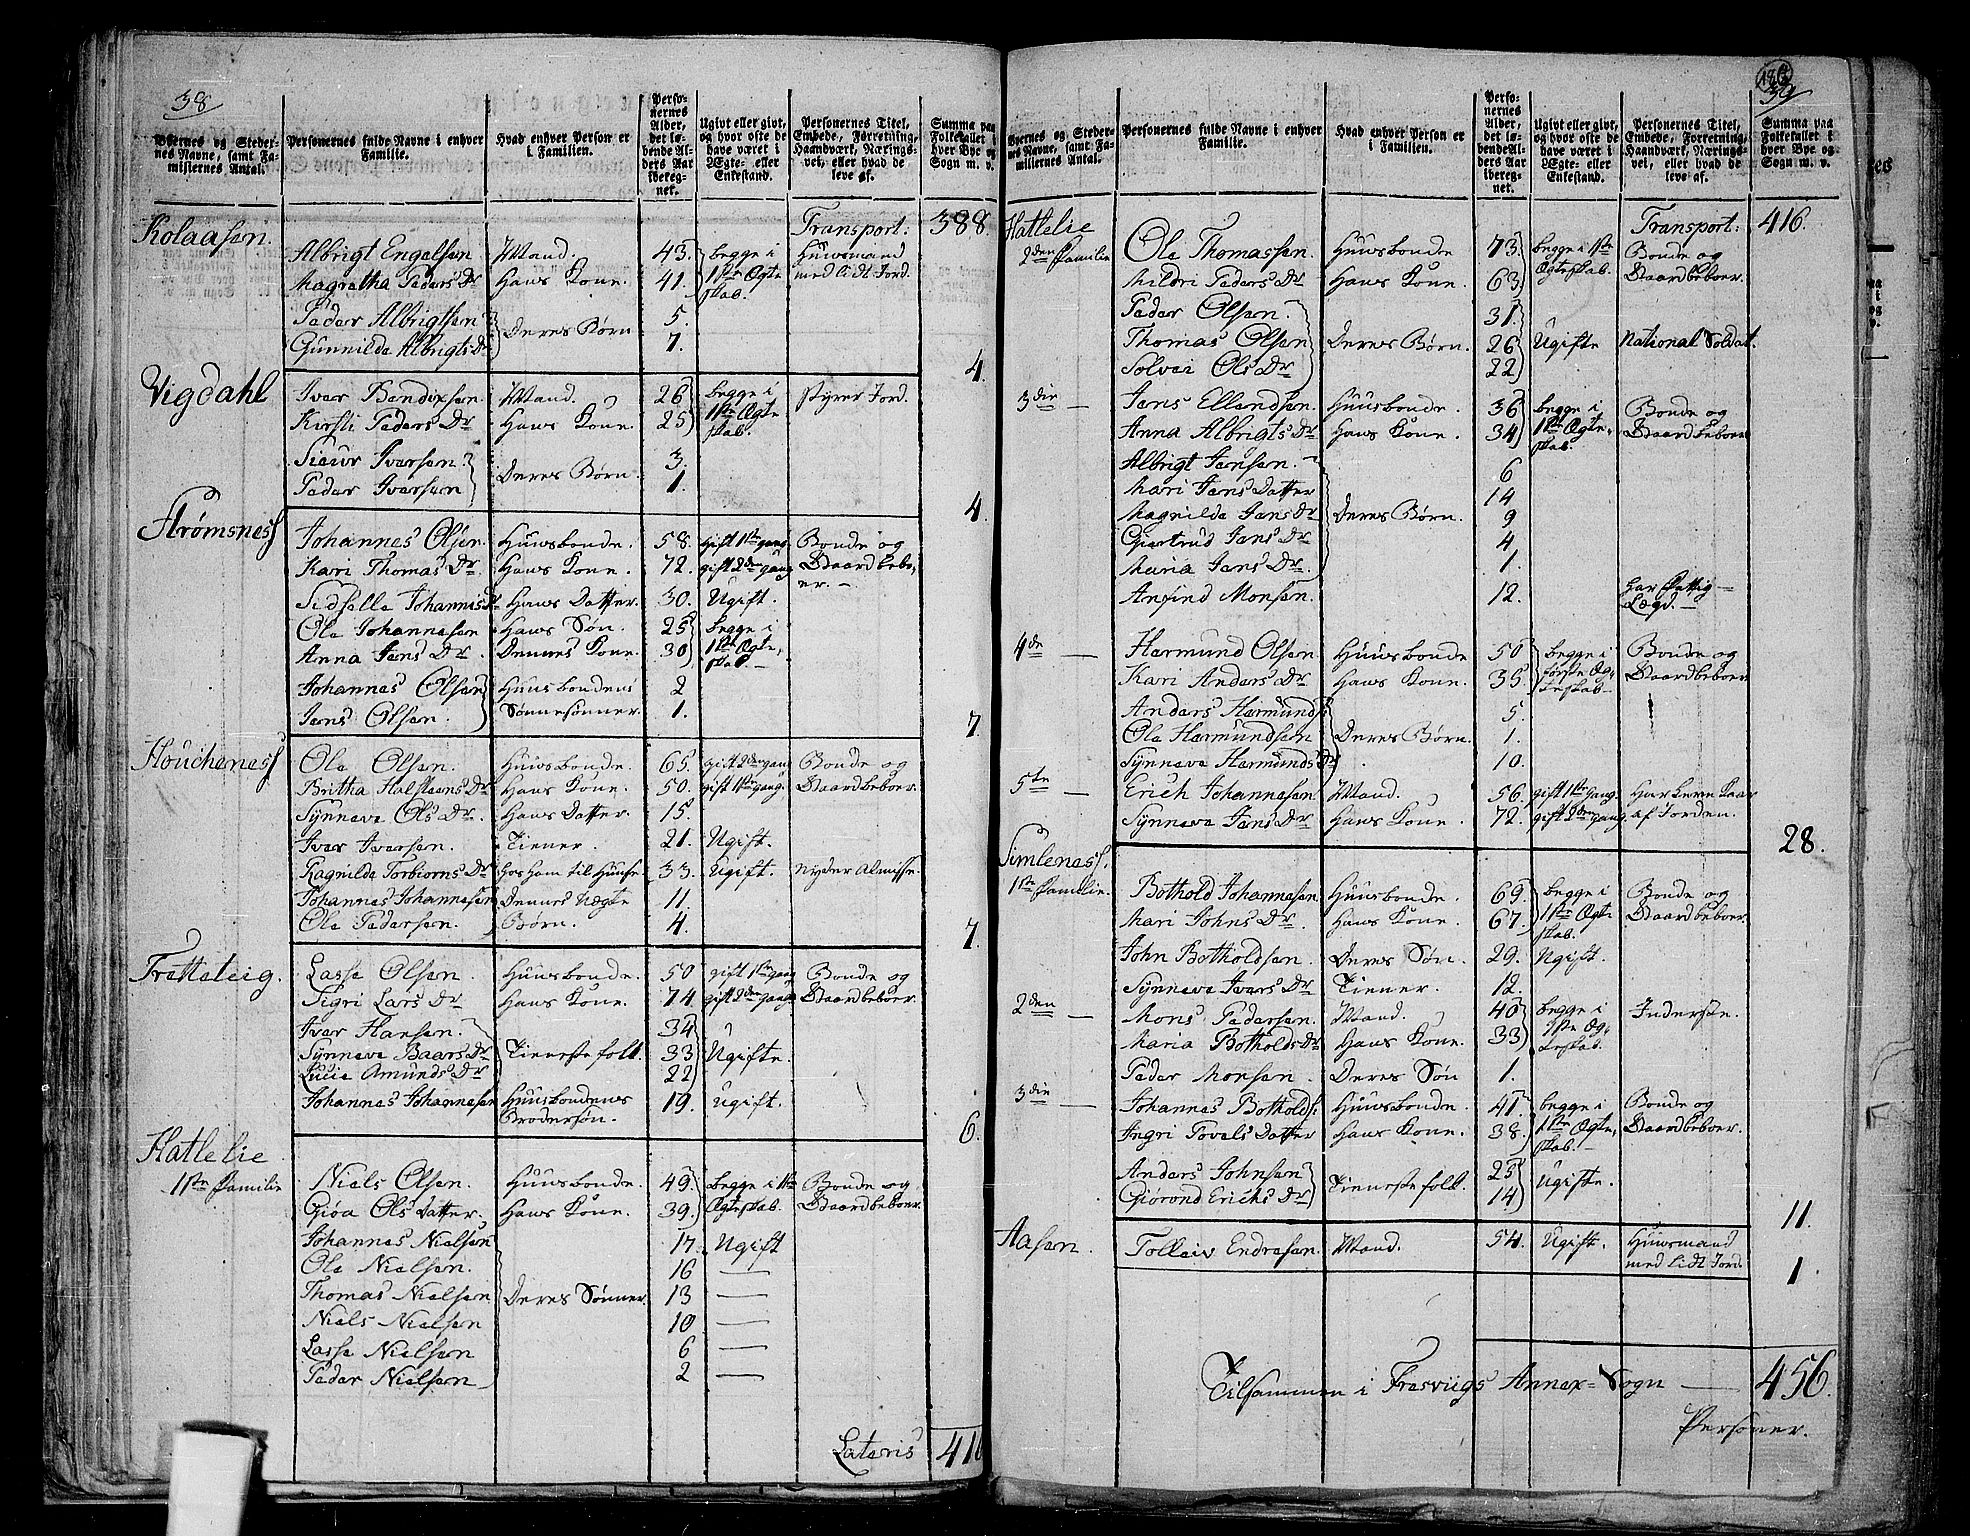 38
Byernes og Stedernes Navne, samt Familiernes Antal.
Personernes fulde Navne i enhver Familie.
Hvad enhver Person er i Familien.
Personernes Alder, det løbende Alders Aar iberegnet.
Ugivt eller givt, og hvor ofte de have været i Ægte- eller Enkestand.
Personernes Titel, Embede, Forretning, Haandværk, Næringsvei, eller hvad de leve af.
Summa paa Folketallet i hver Bye og Sogn m. v.
Transport: 388
Kolaasen.
Albrigt Engelsen Mand. 43. begge i 1ste Ægteskab. Huusmand med lidt Jord.
Magretha Peders Dr Hans Kone. 41.
Peder Albrigtsen Deres Børn 5.
Gunnilda Albrigts Dr 7.
4.
Vigdahl
Iver Bendixsen Mand. 26 begge i 1ste Ægteskab. styrer Jord.
Kirsti Peders Dr Hans Kone. 25
Siur Iversen. Deres Børn. 3.
Peder Iversen 1.
4.
Strømsness
Johannes Olsen Huusbonde. 58. gift 1ste gang Bonde og Gaardbeboer.
Kari Thomas Dr. Hans Kone. 72. gift 2den gang
Sidsella Johannis Dr Hans Datter. 30. Ugift.
Ole Johannesen Hans Søn. 25 begge i 1ste Ægteskab
Anna Jens Dr. Dennes Kone. 30
Johannes Olsen Huusbondens Sønnesønner. 2
Jens Olsen. 1.
7.
Houcheness
Ole Olsen. Huusbonde. 65. gift 2den gang Bonde og Gaardbeboer.
Britha Halsteens Dr Hans Kone. 50. gift 1ste gang.
Synneve Ols Dr. Hans Datter. 15.
Iver Iversen. Tiener. 21. Ugift.
Ragnilda Torbiorns Dr Hos ham til Huuse 33. Ugift. Nyder Almisse.
Johannes Johannesen Dennes Uægte Børn. 11.
Ole Pedersen. 4.
7.
Fretteleig.
Lasse Olsen. Huusbonde. 50 gift 1ste gang Bonde og Gaardbeboer.
Sigri Lars Dr Hans Kone. 74 gift 2den gang
Iver Hansen. Tienestefolk. 34 Ugifte.
Synneve Baars Dr 33
Lucie Amunds Dr 22
Johannes Johannesen Huusbondens Brodersøn. 19. Ugift.
6.
Hatlelie
1ste Familie
Niels Olsen. Huusbonde. 49. begge i 1ste Ægteskab. Bonde og Gaardbeboer.
Giøa Ols Datter. Hans Kone. 39.
Johannes Nielsen Deres Sønner. 17. Ugift
Ole Nielsen. 16 —
Thomas Nielsen 13 —
Niels Nielsen 10 —
Lasse Nielsen 6 —
Peder Nielsen 2 —
Lateris 416
39
Byernes og Stedernes Navne, samt Familiernes Antal.
Personernes fulde Navne i enhver Familie.
Hvad enhver Person er i Familien.
Personernes Alder, det løbende Alders Aar iberegnet.
Ugivt eller givt, og hvor ofte de have været i Ægte- eller Enkestand.
Personernes Titel, Embede, Forretning, Haandværk, Næringsvei, eller hvad de leve af.
Summa paa Folketallet i hver Bye og Sogn m. v.
Transport: 416.
Hattelie
2den Familie
Ole Thomassen Huusbonde 73. begge i 1ste Ægteskab. Bonde og Gaardbeboer.
Mildri Peders Dr Hans Kone. 63
Peder Olsen. Deres Børn. 31 Ugifte
Thomas Olsen 26 National Soldat.
Solvei Ols Dr 22
3die —
Jens Ellendsen Huusbonde. 36 begge i 1ste Ægteskab. Bonde og Gaardbeboer
Anna Albrigts Dr Hans Kone. 34
Albrigt Jensen. Deres Børn. 6
Mari Jens Datter 14
Magnilda Jens Dr 9
Giertrud Jens Dr 4
Maria Jens Dr. 1.
Anfind Monsen. 12. Har Fattig Lægd. —
4de —
Hermund Olsen Huusbonde 50 begge i første Ægteskab Bonde og Gaardbeboer
Kari Anders Dr Hans Kone. 35.
Anders Hermunds: Deres Børn. 5.
Ole Hermundsen 1.
Synneve Hermunds Dr 10.
5te —
Erich Johannesen Mand. 56. gift 1ste gang. Har levekaar af Jorden.
Synneve Jens Dr Hans Kone. 72. gift 2den gang
28.
Simleness.
1ste Familie.
Bothold Johannesen Huusbonde. 69. begge i 1ste Ægteskab. Bonde og Gaardbeboer.
Mari Johns Dr. Hans Kone. 67.
John Botholdsen. Deres Søn. 29. Ugift.
Synneve Ivers Dr Tiener. 12.
2den —
Mons Pedersen. Mand. 40 begge i 1ste Ægteskab. Inderste.
Maria Botholds Dr Hans Kone. 33
Peder Monsen. Deres Søn 1.
3die —
Johannes Botholds: Huusbonde. 41. begge i 1ste Ægteskab. Bonde og Gaardbeboer.
Ingri Povels Datter Hans Kone. 38.
Anders Johnsen Tienestefolk. 25 Ugifte.
Giørond Erichs Dr 14
11.
Aasen.
Tolleiv Endresen. Mand. 54. Ugift. Huusmand med lidt Jord.
1.
Tilsammen i Fresviigs Annex-Sogn — 456.
Personer.